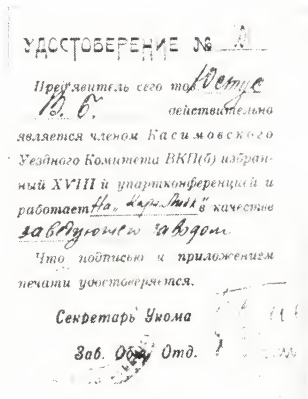 УДОСТОВЕРЕНИЕ №
Пред'явитель сего тов. Юстус
В. Б. действительно
является членом Касимовского
Уездного Комитета ВКП(б) избран-
ный XVIII й упартконференцией и
работает На „ " в качестве
заведующей заводом.
Что подписью и приложением
печати удостоверяется.
Секретарь Укома
Зав. Общ. Отд.